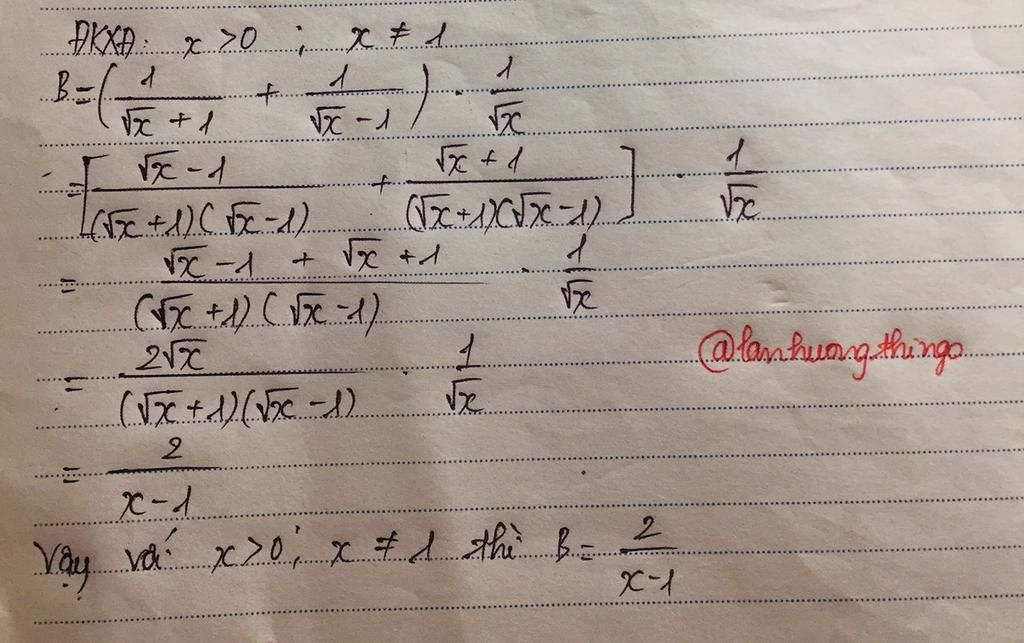 ĐKXĐ: x > 0 ; x ≠ 1
B = (1/(√x + 1) + 1/(√x - 1)) . 1/√x
= [(√x - 1)/((√x + 1)(√x - 1)) + (√x + 1)/((√x + 1)(√x - 1))] . 1/√x
= (√x - 1 + √x + 1)/((√x + 1)(√x - 1)) . 1/√x
= 2√x/((√x + 1)(√x - 1)) . 1/√x
@lanhuong.thingo
= 2/(x - 1)
Vậy với x > 0 ; x ≠ 1 thì B = 2/(x - 1)